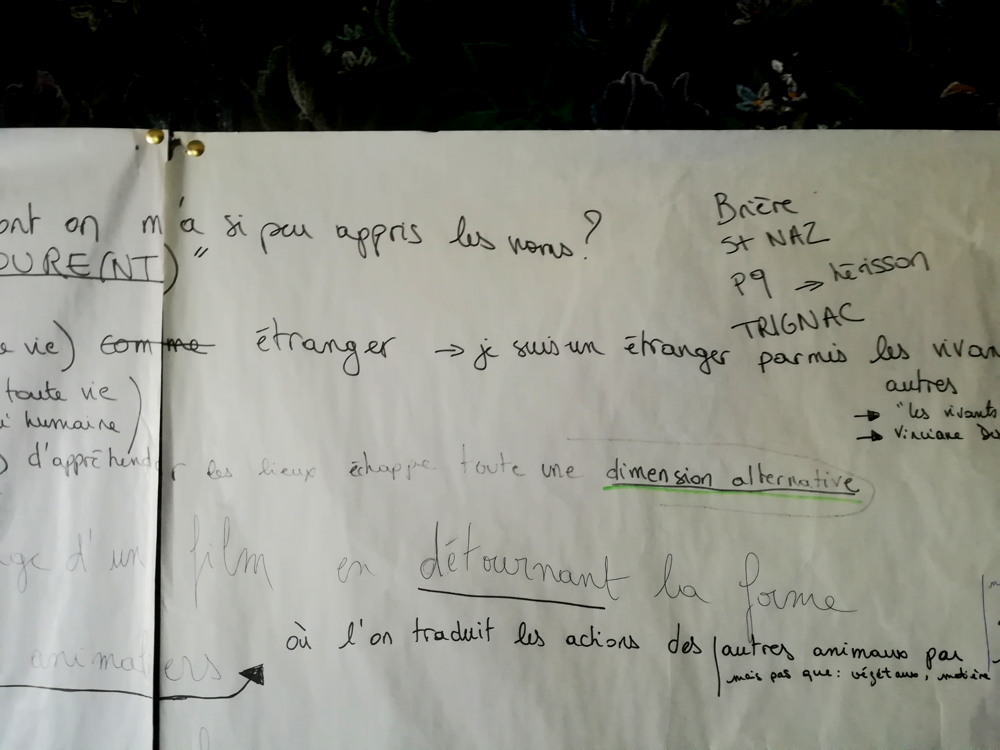 ont on m'a si peu appris les noms?
OURE(NT)"
Brière
St NAZ
P9 → hérisson
TRIGNAC
e vie) comme étranger → je suis un étranger parmis les vivan
autres
→ "les vivants
→ Vinciane Des
toute vie
i humaine)
) d'appréhender les lieux échappe toute une dimension alternative
age d'un film en détournant la forme
où l'on traduit les actions des autres animaux par
mais pas que: végétaux, matière
animaliers